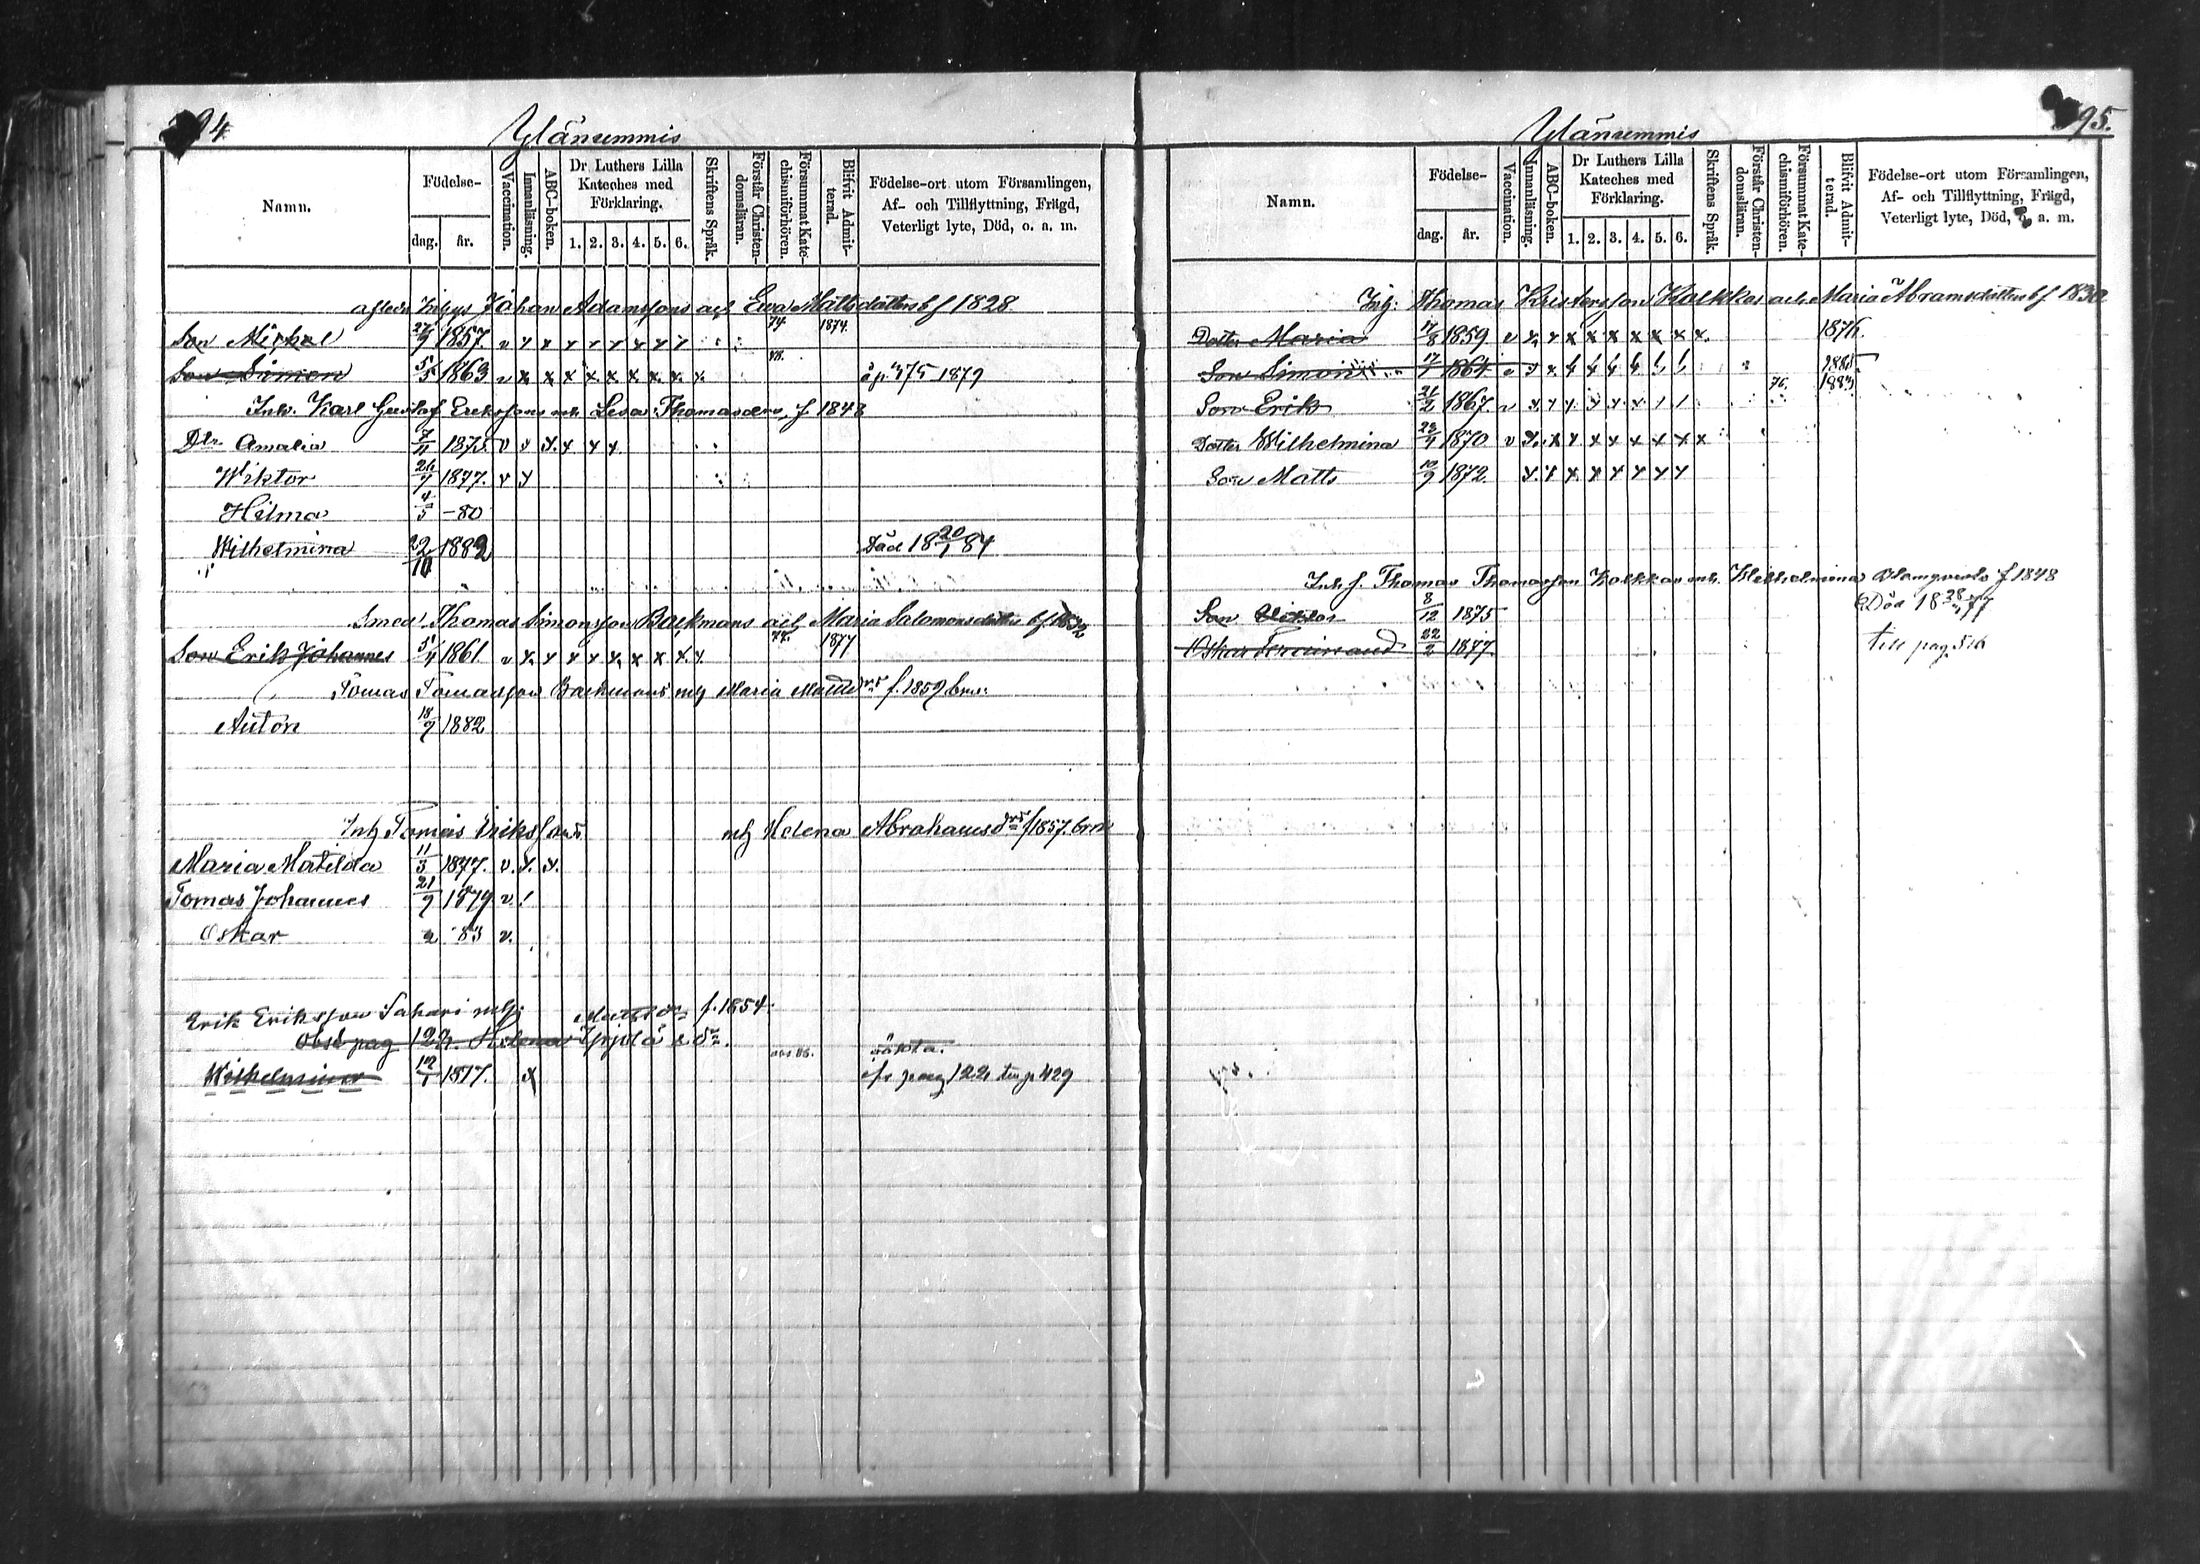 94
Ylänummis
Namn.
Födelse-
dag. år.
Vaccination.
Innanläsning.
ABC-boken.
Dr Luthers Lilla
Kateches med
Förklaring.
1. 2. 3. 4. 5. 6.
Skriftens Språk.
Förstår Christen-
domsläran.
Försummat Kate-
chismiförhören.
Blifvit Admit-
terad.
Födelse-ort utom Församlingen,
Af- och Tillflyttning, Frägd,
Veterligt lyte, Död, o. a. m.
Johan Adamssons och Ewa Mattsdotters f 1828
Son Michel 27/9 1857. v x x x x x x x x 74. 1874.
Son Simon 5/5 1863 v x x x x x x x x x. 78. 1879
Inh. Karl Gustaf Erikssons mh Lesa Thomasdrs, f 1848
Dtr Amalia 7/11 1875. v v x. x x x
Wiktor 26/7 1877. v x
Hilma 4/5 -80
Wilhelmina 22/10 1882 Död 18 20/1 84
Smed. Thomas Simonsson Backmans och Maria Salomonsdotter f 1832
Son Erik Johannes 5/4 1861. v x. x x x x. x x. x. x. 77. 1877
Tomas Tomasson Backmans mh Maria Matts drs f. 1859 brn:
Anton 18/9 1882
Inh Tomas Erikssons mh Helena Abrahams drs f 1857. brn
Maria Matilda 11/3 1877. v. x. x.
Tomas Johannes 21/9 1879 v. /
Oskar 83 v.
Erik Eriksson Sahari mh: Matts dr f. 1854.
Obs! pag 122. Helena
Wilhelmina 12/1 1877. x fr pag 122 till p 429
95.
Ylänummis
Namn.
Födelse-
dag. år.
Vaccination.
Innanläsning.
ABC-boken.
Dr Luthers Lilla
Kateches med
Förklaring.
1. 2. 3. 4. 5. 6.
Skriftens Språk.
Förstår Christen-
domsläran.
Försummat Kate-
chismiförhören.
Blifvit Admit-
terad.
Födelse-ort utom Församlingen,
Af- och Tillflyttning, Frägd,
Veterligt lyte, Död, o. a. m.
Inh: Thomas Kristersson Kolkkas och Maria Abramsdotters f 1830
Dotter Maria 17/8 1859 v x. x x x x x x x x. 1876.
Son Simon 17/1 1864 1880.
Son Erik 21/2 1867. v x. x x. x. x. x / / 76. 1883.
Dotter Wilhelmina 23/4 1870 v x. x x x x x x x x
Son Matts 10/9 1872. x. x x. x x x x x
Inh. f. Thomas Thomasson Kolkkas mh. Wilhelmina Blomqvists f 1848
Son Viktor 8/12 1875 Död 18 28/11 77
Oskar Ferdinand 22/2 1877. till pag 516